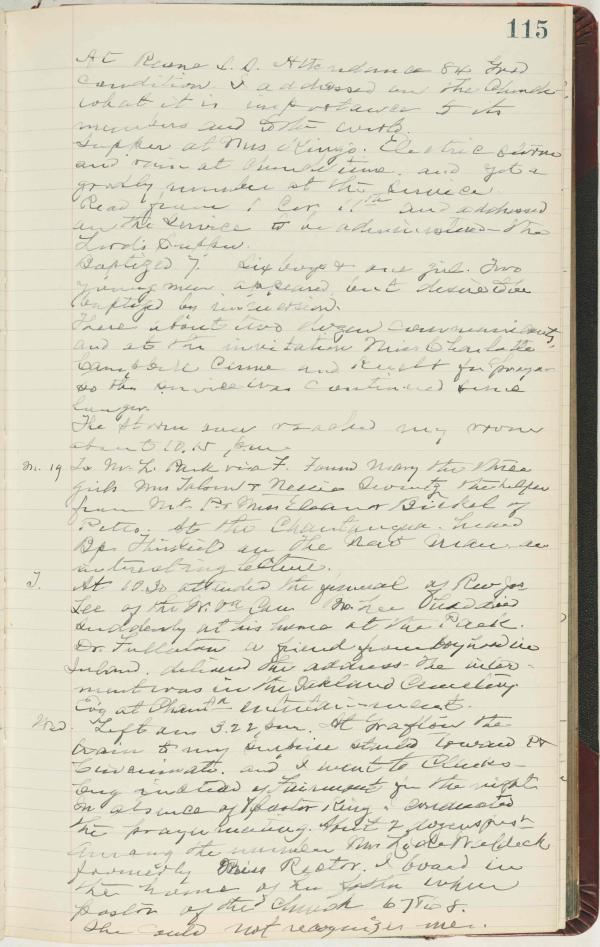 115
At Reene S. S. Attendance 84 Good
condition. I addressed on the Church
what it is importance to its
members and to the world.
Supper at Mrs King's. Electric storm
and rain at Church time. and yet a
goodly number at the service
Read from 1 Cor. 11th and addressed
on the service to be administered — the
Lord's Supper.
Baptized 7. Six boys & one girl. Two
young men appeared, but desired to be
baptized by immersion.
There about two dozen communicants
and at the invitation Miss Charlotte
Campbell came and knelt for prayer
so the service was continued some
longer.
The storm over reached my room
about 10.15 p.m.
M. 19 To Mt. L. Park via F. Found Mary the three
girls Mrs & Nessie the helper
from Mt. P. & Miss Eleanor of
Pitts. At the Chautauqua. heard
Bp. on The New Man, an
interesting lecture.
T. At 10.30 attended the funeral of Rev Jas
Lee of the W. Va Con. Mr Lee had died
suddenly at his home at the Park.
Dr. a friend from boyhood in
delivered the address. The inter-
ment was in the Oakland Cemetery
Ev'g at entertainment.
Wed. Left on 3.22 p.m. At Grafton the
train to my surprise started toward
Cincinnati. and I went to Clarks-
burg instead of Fairmont for the night
In absence of Pastor King I conducted
the prayer meeting. About 2 dozen present
Among the number Mrs
formerly Miss Rector. I board in
the home of her father when
pastor of the Church 67 to 8.
She could not recognize me.